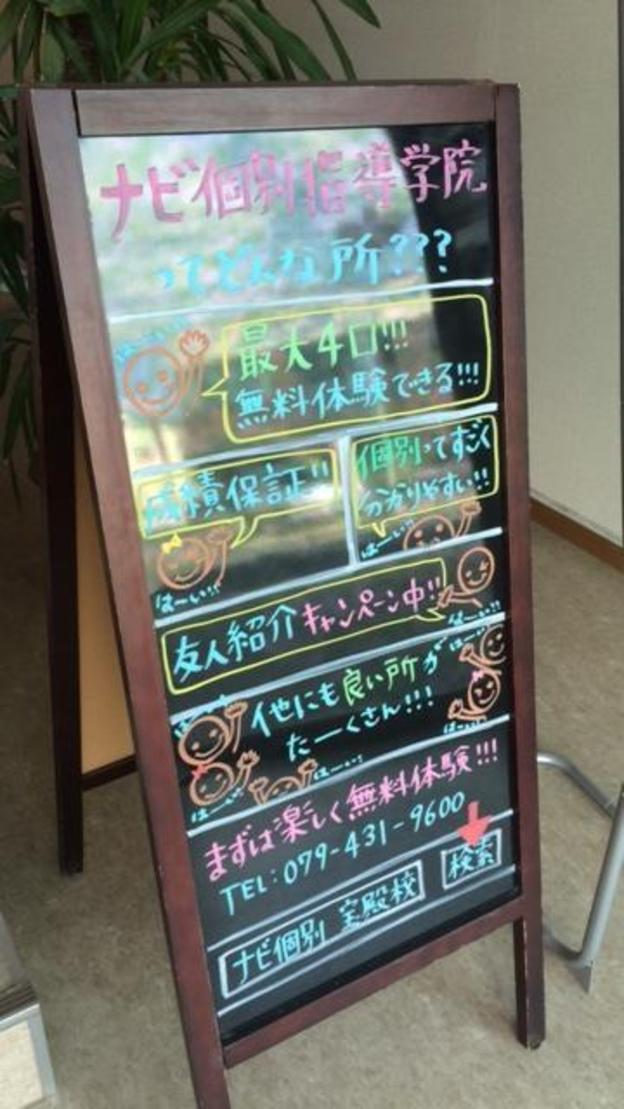 ナビ個別指導学院
ってどんな所???
はーい!!
最大4口!!!
無料体験できる!!!
成績保証!!
はーい!!
個別ってすごく
分かりやすい!!
はーい!!
友人紹介キャンペーン中!!
はーい!!
他にも良い所が
たーくさん!!!
はーい!!
はーい!!
はーい!
まずは楽しく無料体験!!!
TEL:079-431-9600
ナビ個別 宝殿校
検索